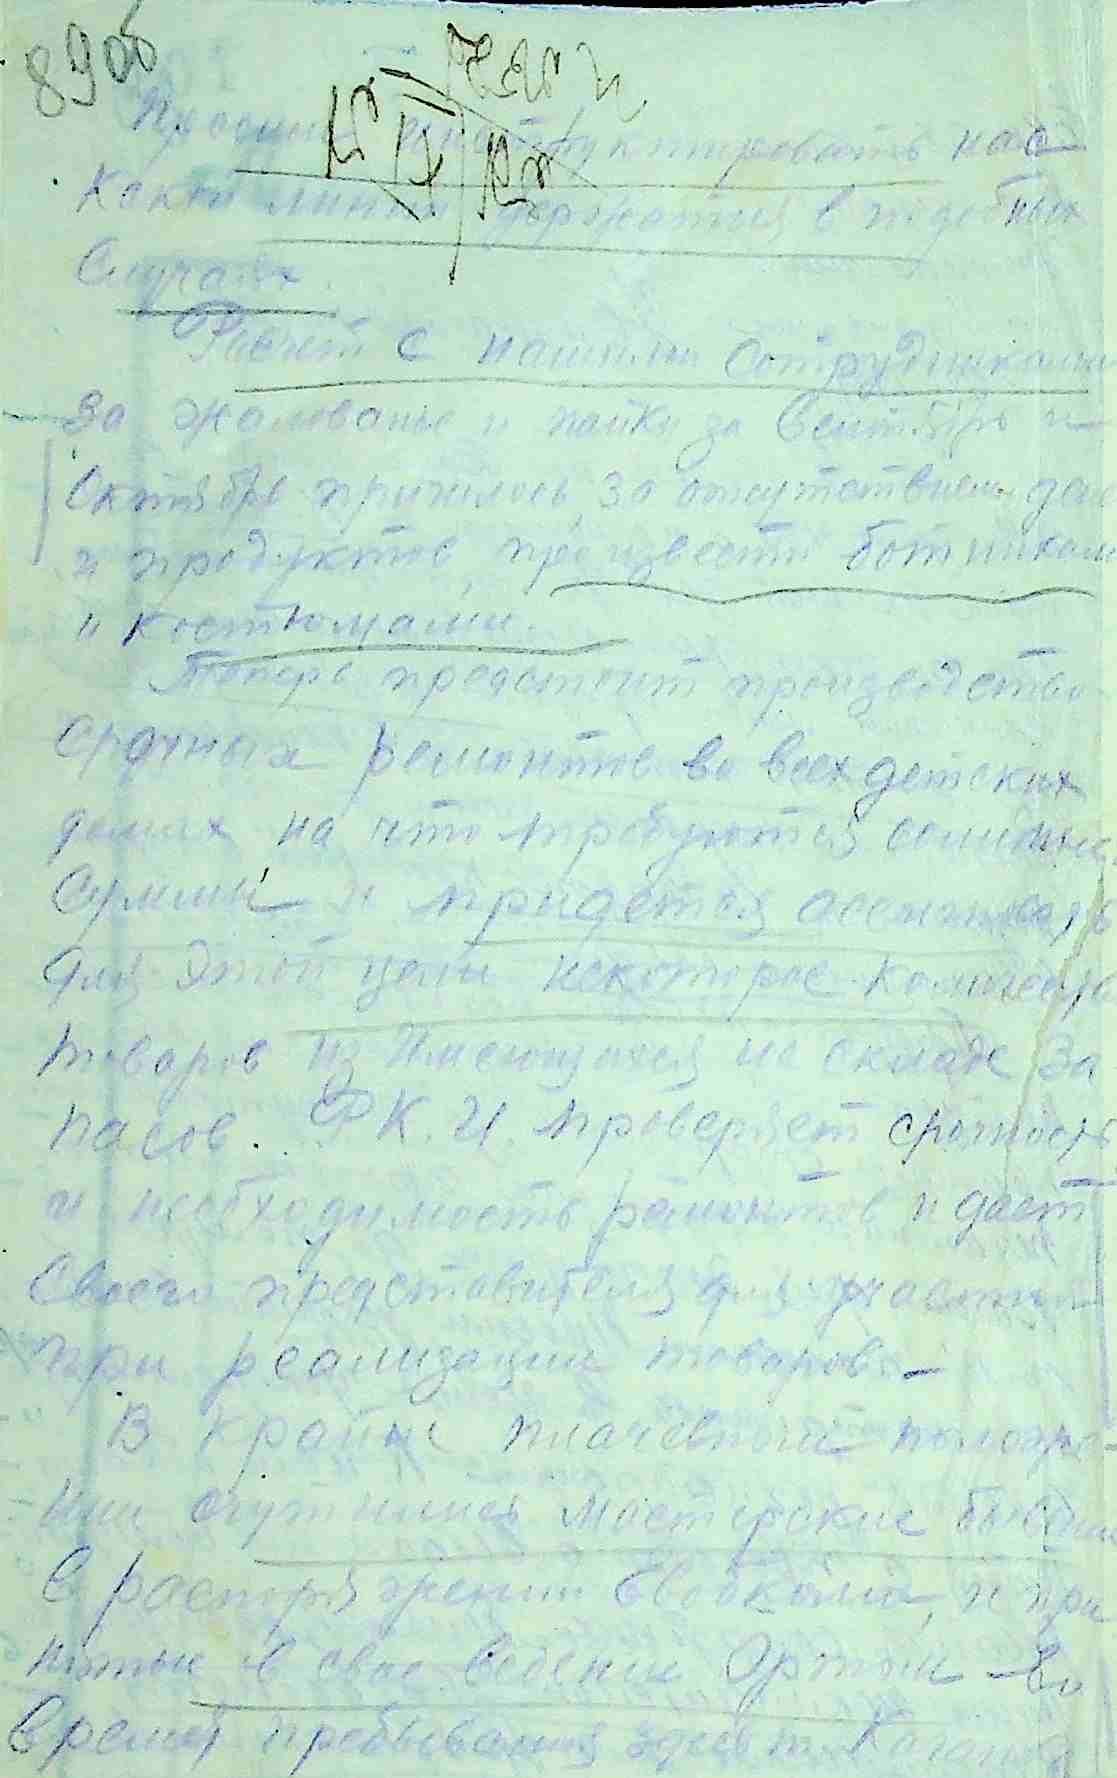 89об
Просим инструктировать нас
какой линии держаться в подобных
Случаях.
Расчет с нашими Сотрудниками
За жалованье и пайки за Сентябрь и
Октябрь пришлось, за отсутствием ден
и продуктов, произвести ботинками
и костюмами.
Теперь предстоит производство
срочных ремонтов во всех детских
домах на что требуются солидные
Суммы и придется ассигновать
для этой цели некоторое количество
товаров из имеющихся на складе за
пасов. РК.И. проверяет срочность
и необходимость ремонтов и дает
Своего представителя для участия
при реализации товаров.-
В крайне плачевном положе-
нии очутились мастерские бывшие
в распоряжении Евобкома, и при
нятые в свое ведение Ортом во
время пребывания здесь т.